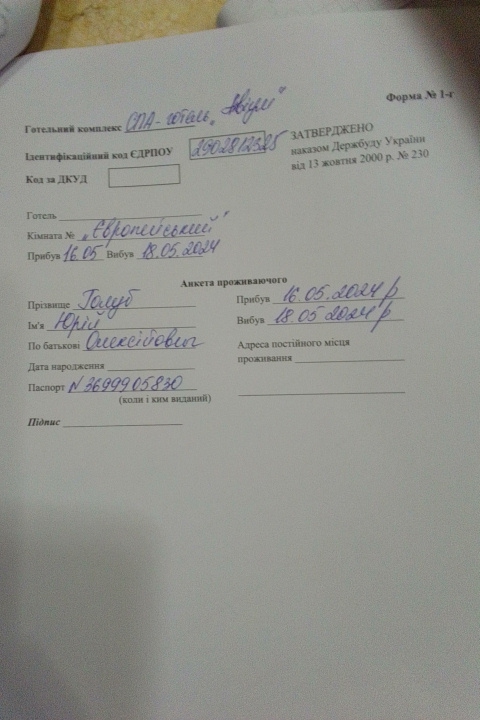 Форма № 1-г
Готельний комплекс СПА- готель „Авіум"
Ідентифікаційний код ЄДРПОУ 2902812525
ЗАТВЕРДЖЕНО
наказом Держбуду України
від 13 жовтня 2000 р. № 230
Код за ДКУД
Готель
Кімната № „Європейський"
Прибув 16.05 Вибув 18.05.2024
Анкета проживаючого
Прізвище Голуб
Ім'я Юрій
По батькові Олексійович
Дата народження
Паспорт N 3699905830
(коли і ким виданий)
Підпис
Прибув 16.05.2024 р
Вибув 18.05 2024 р
Адреса постійного місця
проживання